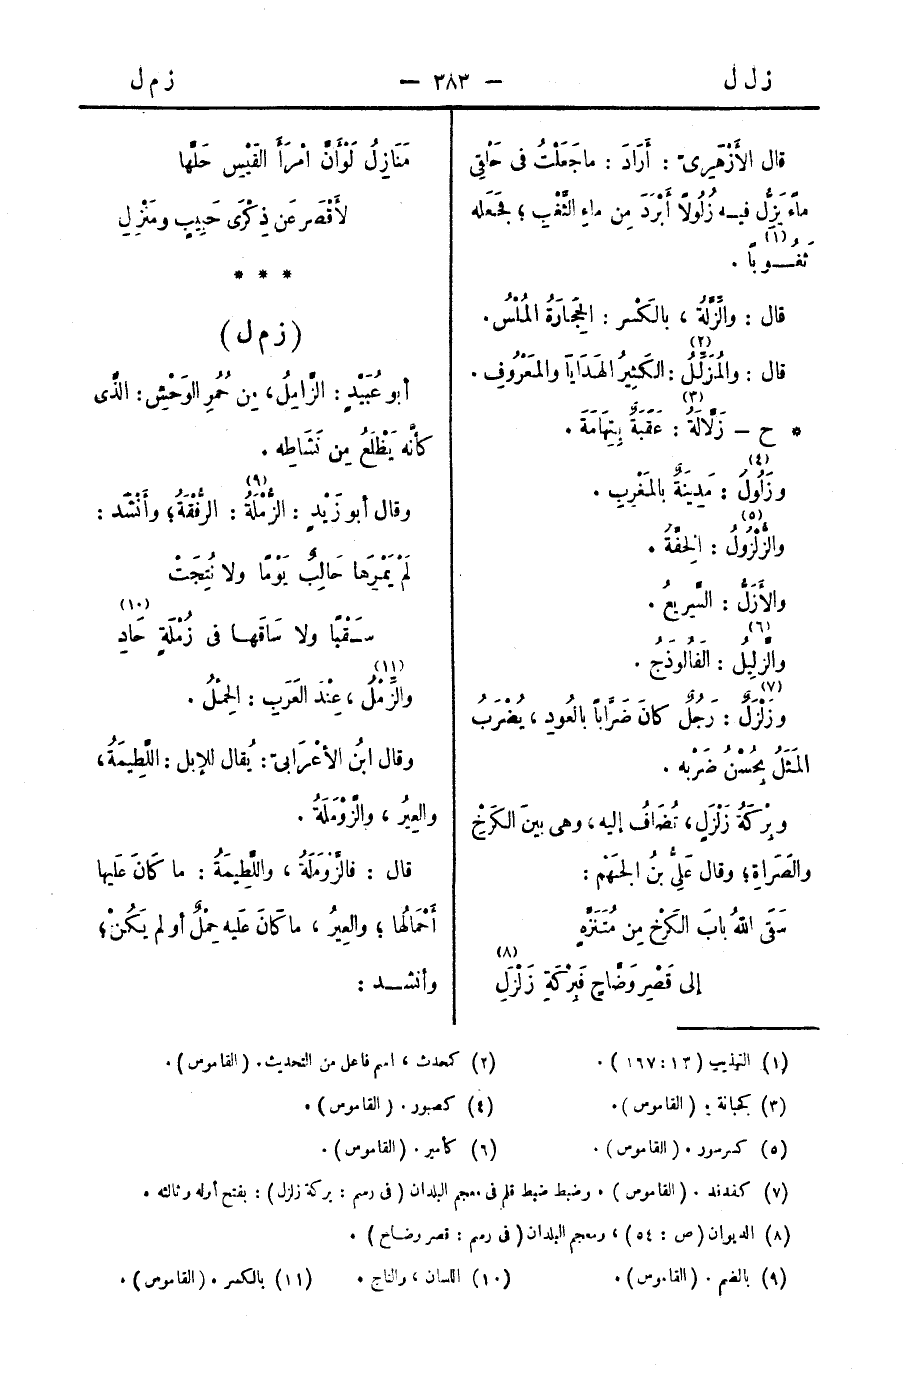 ز ل ل — ٣٨٣ — ز م ل
قال الأَزْهَرِىّ : أَرَادَ : ما جَعَلْتُ فى حَلْقِى
ماءً يَزِلُّ فيـه زُلُولاً أَبْرَدَ مِن ماءِ الثَّغْبِ ؛ فجَعَله
ثُغُــوبًا (١) .
قال : والزِّلَّةُ ، بالكَسْرِ : الحِجَارَةُ المُلْسُ .
قال : والمُزَلِّلُ (٢) : الكَثِيرُ الهَدَايَا والمَعْرُوفِ .
* ح – زَلَّالَةُ (٣) : عَقَبَةٌ بِتِهَامَةَ .
وزَلُولُ (٤) : مَدِينَةٌ بالمَغْرِبِ .
والزُّلْزُولُ (٥) : الخِفَّةُ .
والأَزَلُّ : السَّرِيعُ .
والزَّلِيلُ (٦) : الفَالُوذَجُ .
وزَلْزَلٌ (٧) : رَجُلٌ كانَ ضَرَّاباً بالعُودِ ، يُضْرَبُ
المَثَلُ بِحُسْنِ ضَرْبِه .
وبِرْكَةُ زَلْزَلٍ ، تُضَافُ إليه ، وهى بينَ الكَرْخِ
والصَّرَاةِ ؛ وقال عَلِىُّ بنُ الجَهْمِ :
سَقَى اللهُ بابَ الكَرْخِ مِن مُتَنَزَّهٍ
إلى قَصْرِ وَضَّاحٍ فَبِرْكَةِ زَلْزَلِ (٨)
مَنَازِلُ لَوْ أَنَّ امْرَأَ القَيْسِ حَلَّها
لأَقْصَر عَن ذِكْرَى حَبِيبٍ ومَنْزِلِ
* * *
( ز م ل )
أبو عُبَيْدٍ : الزَّامِلُ ، مِن حُمُرِ الوَحْشِ : الَّذى
كأنَّه يَظْلَعُ مِن نَشَاطِه .
وقال أبو زَيْدٍ : الزُّمْلَةُ (٩) : الرُّفْقَةُ ؛ وأَنْشَد :
لَمْ يَمْرِها حَالِبٌ يَوْمًا ولا نُتِجَتْ
سَـقْبًا ولا سَاقَهـا فى زُمْلَةٍ حَادِ (١٠)
والزِّمْلُ (١١) ، عِنْدَ العَرَبِ : الحِمْلُ .
وقال ابنُ الأَعْرَابىّ : يُقال للإبل : اللَّطِيمَةُ ،
والعِيرُ ، والزَّوْمَلَةُ .
قال : فالزَّوْمَلَةُ ، واللَّطِيمَةُ : ما كَانَ عَلَيها
أَحْمَالُها ؛ والعِيرُ ، ما كَانَ عَلَيه حِمْلٌ أو لم يَكُنْ ؛
وأنشــد :
(١) التهذيب ( ١٣ : ١٦٧ ) . (٢) كمحدث ، اسم فاعل من التحديث . ( القاموس ) .
(٣) كجبانة : ( القاموس ) . (٤) كصبور . ( القاموس ) .
(٥) كسرسور . ( القاموس ) . (٦) كأمير . ( القاموس ) .
(٧) كفدفد . ( القاموس ) . وضبط ضبط قلم فى معجم البلدان ( فى رسم : بركة زلزل ) : بفتح أوله وثالثه .
(٨) الديوان ( ص : ٥٤ ) ، ومعجم البلدان ( فى رسم : قصر وضاح ) .
(٩) بالضم . ( القاموس ) . (١٠) اللسان ، والتاج . (١١) بالكسر . ( القاموس ) .